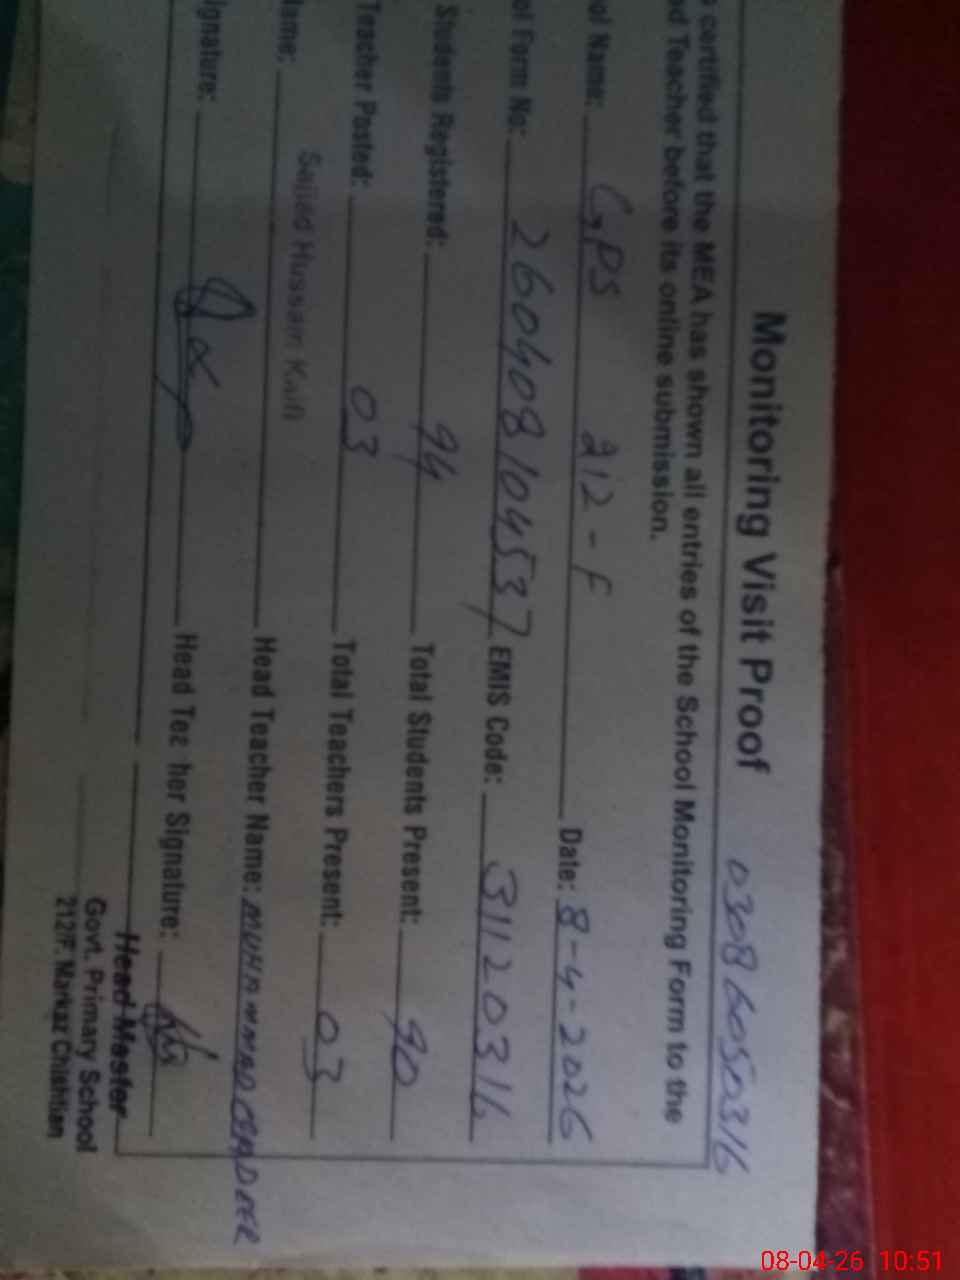 Monitoring Visit Proof 03086050316
certified that the MEA has shown all entries of the School Monitoring Form to the
ad Teacher before its online submission.
ol Name: GPS 212-F Date: 8-4-2026
ol Form No: 260408104537 EMIS Code: 31120316
Students Registered: 94 Total Students Present: 90
Teacher Posted: 03 Total Teachers Present: 03
Name: Sajjad Hussain Kaifi Head Teacher Name: MUHAMMAD QADEER
ignature: Head Tea her Signature:
Head Master
Govt. Primary School
212/F. Markaz Chishtian
08-04-26 10:51